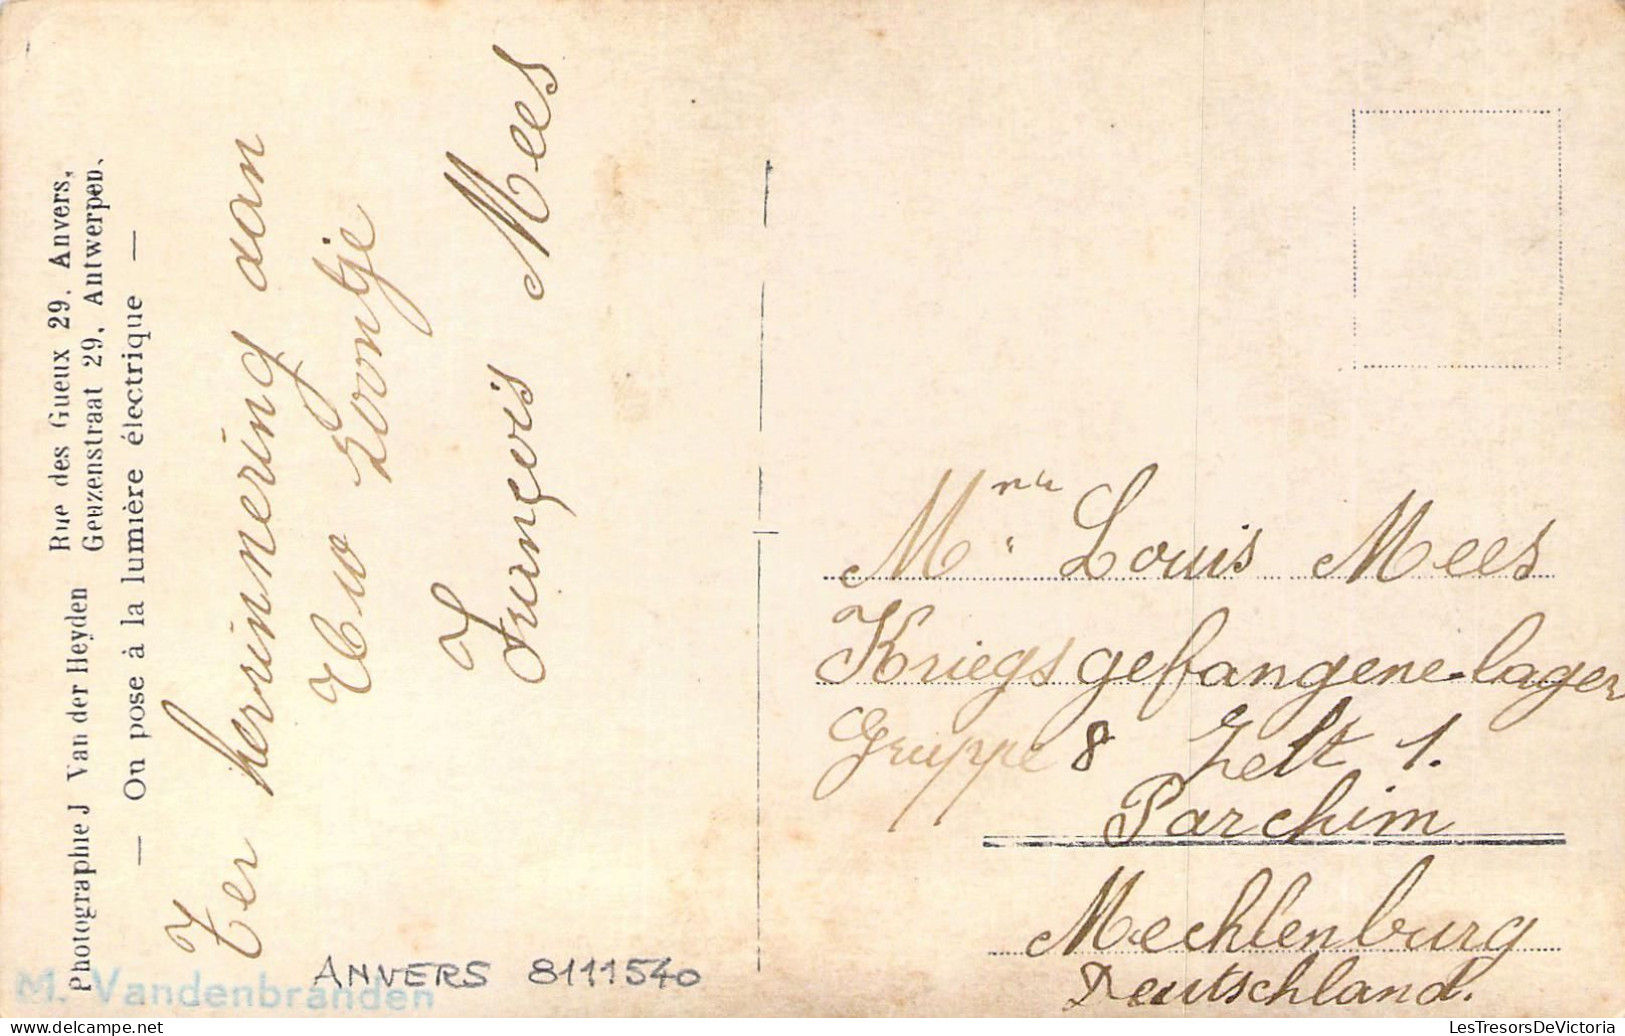 Photographe J Van der Heyden Rue des Gueux 29. Anvers,
Geuzenstraat 29. Antwerpen.
— On pose à la lumière électrique —
Ter herrinnering aan
Uw zoontje
François Mees
Louis Mees
Kriegsgefangene-lager
Gruppe 8 Zelt 1.
Parchim
Mechlenburg
Deutschland.
M. Vandenbranden
ANVERS 8111540
LesTresorsDeVictoria